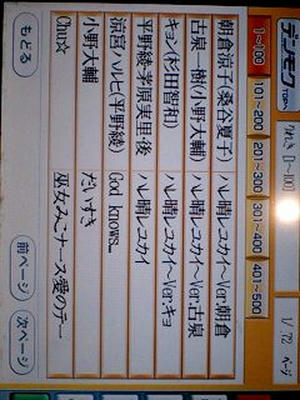 デンモク
TOPへ
りれき [1~100]
1/72 ページ
1~100 101~200 201~300 301~400 401~500
朝倉涼子(桑谷夏子) ハレ晴レユカイ~Ver.朝倉
古泉一樹(小野大輔) ハレ晴レユカイ~Ver.古泉
キョン(杉田智和) ハレ晴レユカイ~Ver.キョ
平野綾・茅原実里・後 ハレ晴レユカイ
涼宮ハルヒ(平野綾) God knows...
小野大輔 だいすき
Chu☆ 巫女みこナース愛のテー
もどる 前ページ 次ページ